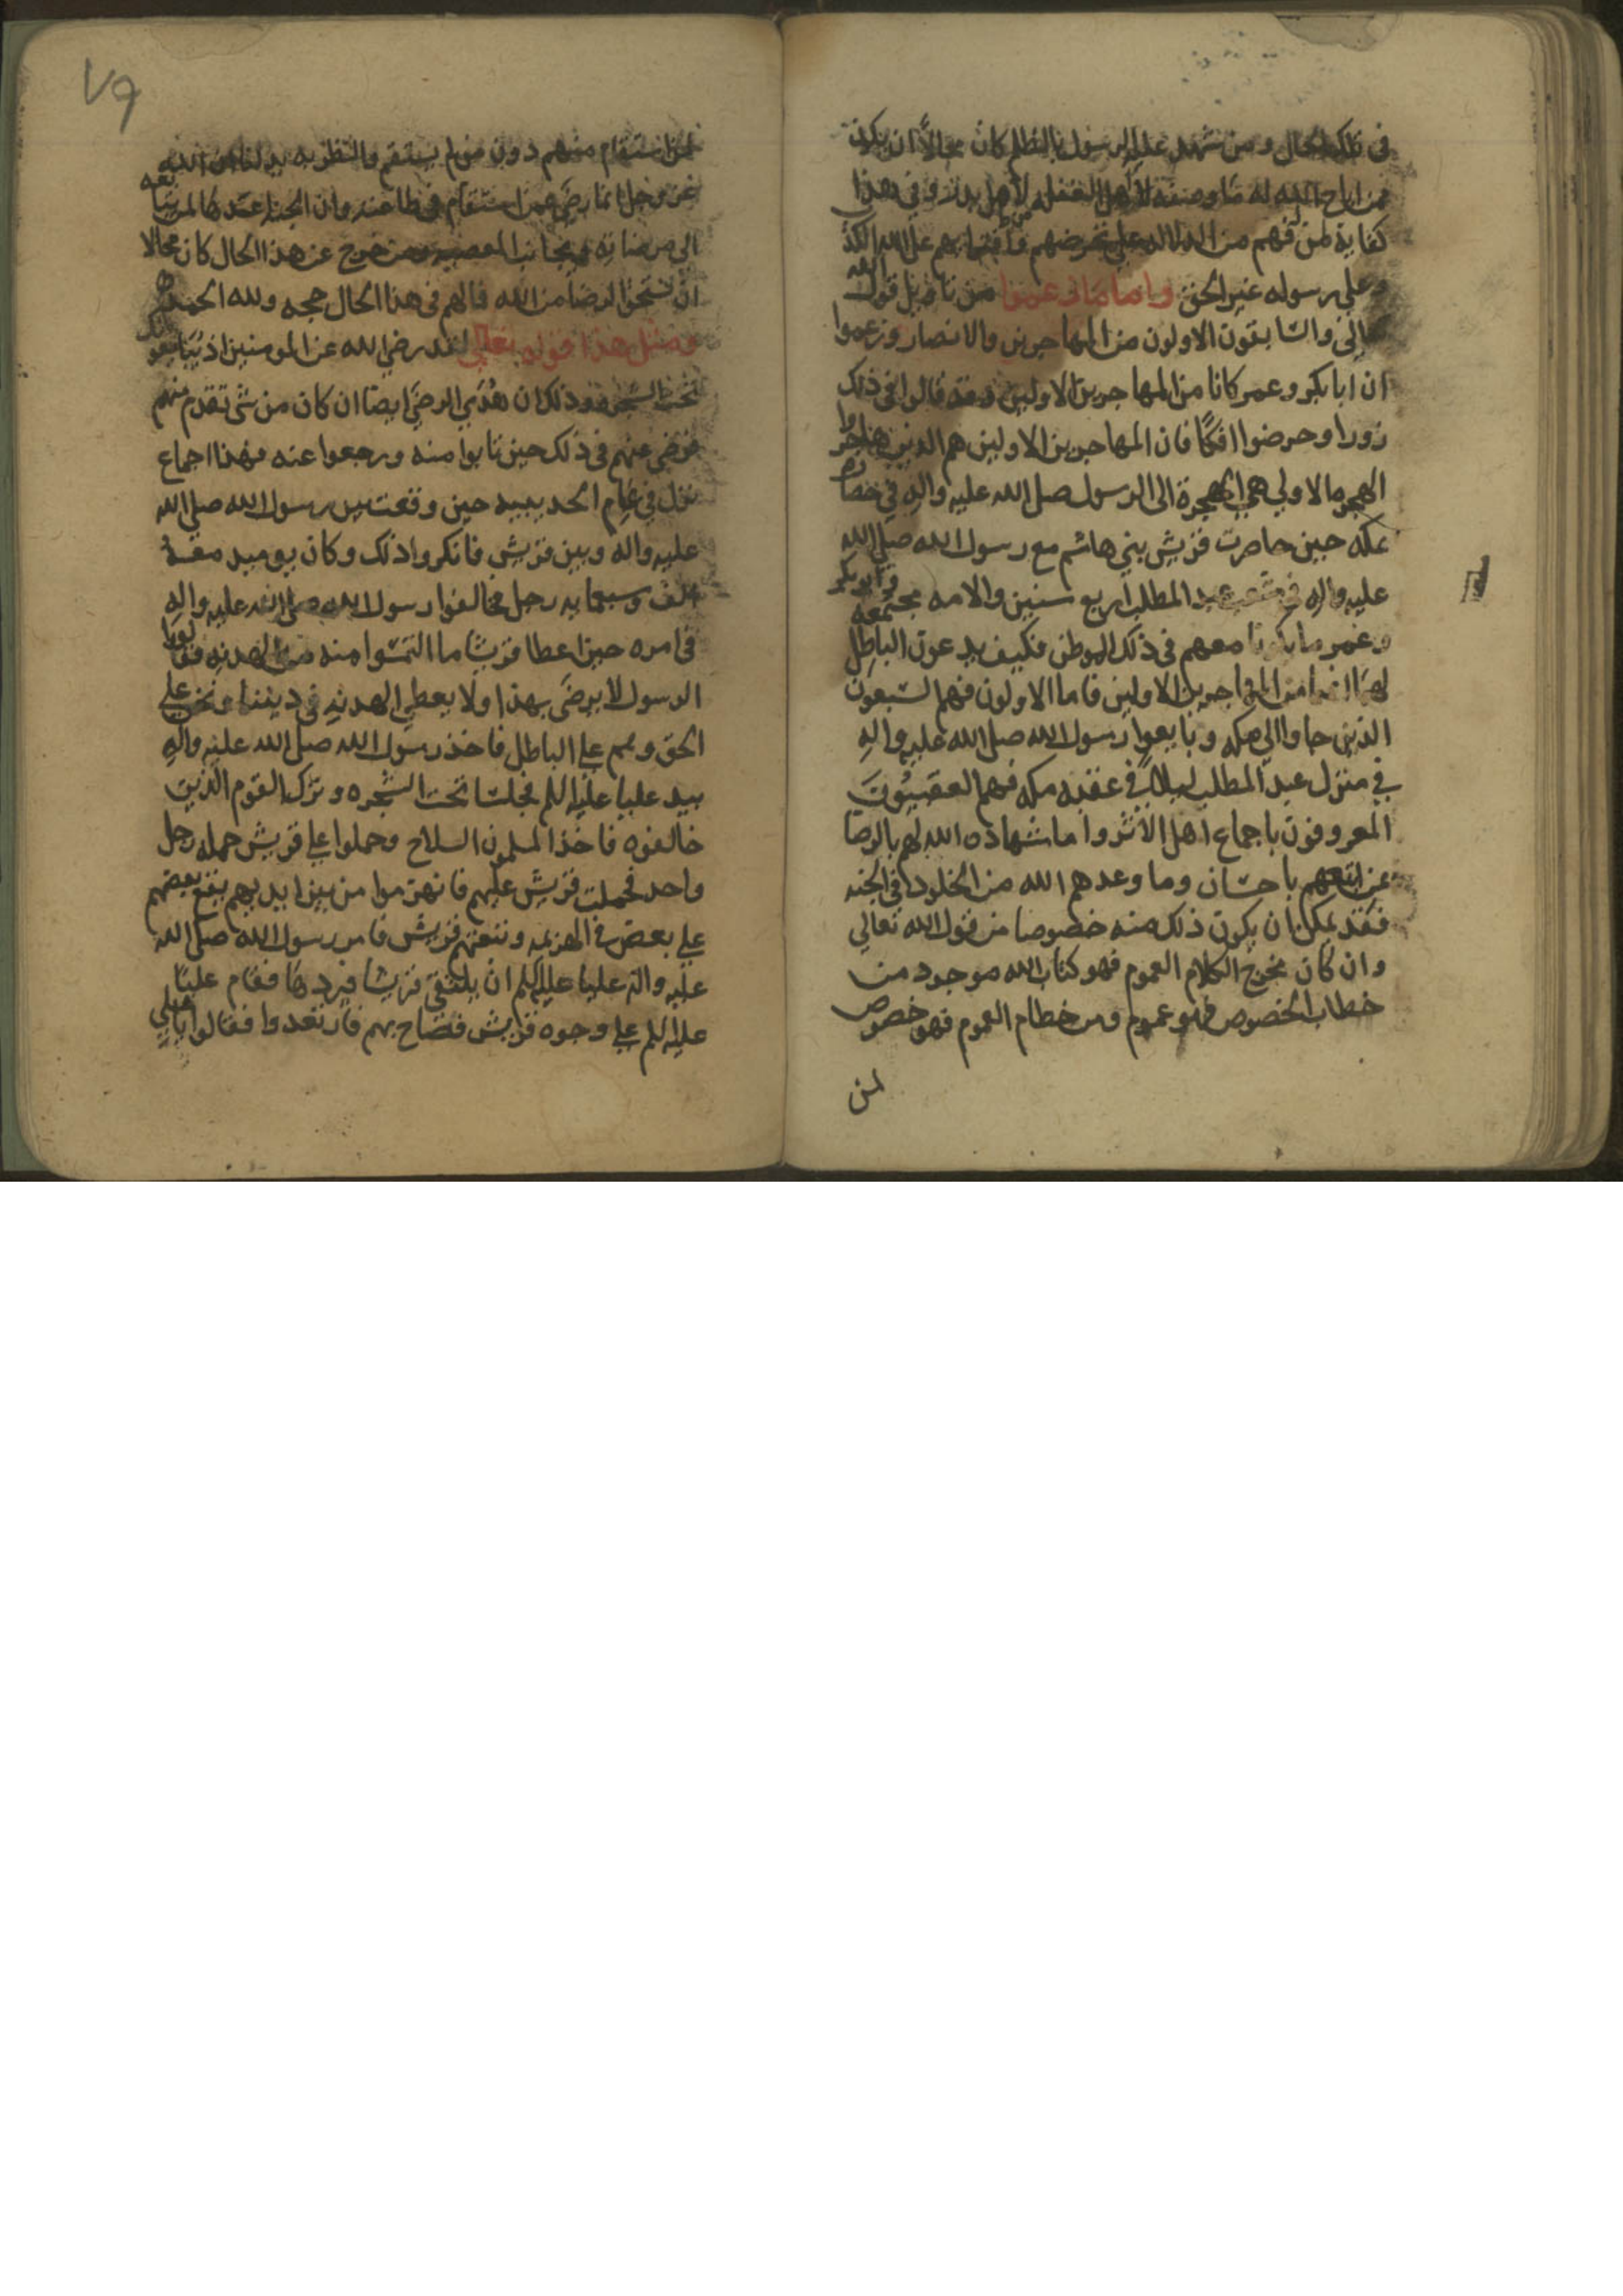 في تلك الحال ومن شهد عليه الرسول بالظلم كان محالا ان يكون
ممن اباح الله له ما وصفه لاهل الغفله لاهل بدر وفي هذا
كفاية لمن فهم من الدلاله على تخرصهم وافترايهم على الله الكذب
وعلى رسوله غير الحق واما ما زعموا من تاويل قول الله
تعالى والسابقون الاولون من المهاجرين والانصار وزعموا
ان ابا بكر وعمر كانا من المهاجرين الاولين فقد قالوا في ذلك
زورا وحرضوا افكا فان المهاجرين الاولين هم الذين هاجروا
الهجره الاولى هي الهجرة الى الرسول صلى الله عليه واله في حصاره
بمكه حين حاصرت قريش بني هاشم مع رسول الله صلى الله
عليه واله في شعب عبد المطلب اربع سنين والامه مجتمعه وابو بكر
وعمر ما يكونا معهم في ذلك الموطن فكيف يدعون الباطل
لهما انهما من المهاجرين الاولين فاما الاولون فهم السبعون
الذين جاوا الى مكه وبايعوا رسول الله صلى الله عليه واله
في منزل عبد المطلب ليلا في عقبه مكه فهم العقبيون
المعروفون باجماع اهل الاثر واما شهاده الله لهم بالرضا
عن اتبعهم باحسان وما وعدهم الله من الخلود في الجنه
فقد يمكن ان يكون ذلك منه خصوصا من قول الله تعالى
وان كان مخرج الكلام العموم فهو كتاب الله موجود من
خطاب الخصوص فهو عموم ومن خطام العموم فهو خصوص
لمن
٧٩
لمن استقام منهم دون من لم يستقم والنظر به يدلنا ان الله
عز وجل انما رضي عمن استقام في طاعته وان الجنه اعدها لمن
الى مرضاته ويجانب المعصيه ومن خرج عن هذا الحال كان محالا
ان يستحق الرضا من الله فالهم في هذا الحال حجه ولله الحمد
ومثل هذا قوله تعالى لقد رضي الله عن المومنين اذ يبايعونك
تحت الشجره وذلك ان هذي الرضى ايضا ان كان من شي تقدم منهم
فرضي عنهم في ذلك حين تابوا منه ورجعوا عنه فهذا اجماع
نزل في عام الحديبيه حين وقعت بين رسول الله صلى الله
عليه واله وبين قريش فانكروا ذلك وكان يوميد معه
الف وسبعمايه رجل فخالفوا رسول الله صلى الله عليه واله
في امره حين اعطا قريشا ما التمسوا منه من الهدنه فقالوا
الرسول لا يرضى بهذا ولا يعطي الهدنه في ديننا ونحن على
الحق وهم على الباطل فاخذ رسول الله صلى الله عليه واله
بيد عليا عليه السلم فجلسا تحت الشجره وترك القوم الذين
خالفوه فاخذ المسلمون السلاح وحملوا على قريش حمله رجل
واحد فحملت قريش عليهم فانهزموا من بين ايديهم يقع بعضهم
على بعض في الهزيمه وتتعتهم قريش فامر رسول الله صلى الله
عليه واله عليا عليه السلم ان يلتقي قريشا فيردها فقام عليا
عليه السلم على وجوه قريش فصاح بهم فارتعدوا فقالوا يا علي